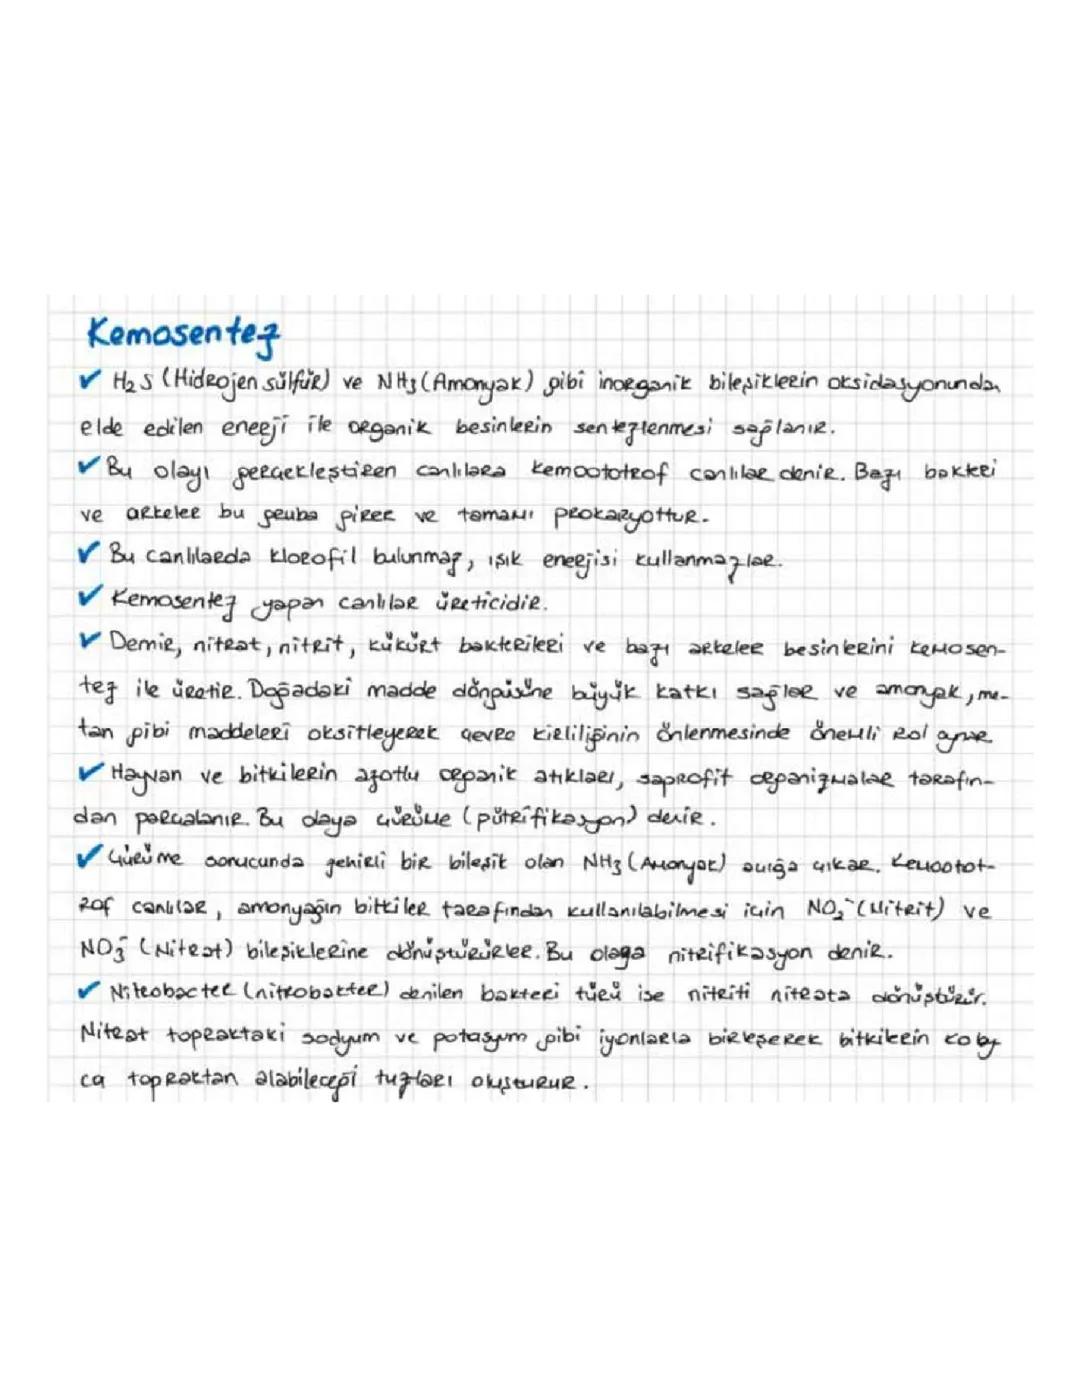 Kemosentez
✓ H₂S (Hidrojen sülfür) ve NH₃ (Amonyak) gibi inorganik bileşiklerin oksidasyonundan
elde edilen enerji ile organik besinlerin sentezlenmesi sağlanır.
✓ Bu olayı gerçekleştiren canlılara kemoototrof canlılar denir. Bazı bakteri
ve arkeler bu gruba girer ve tamamı prokaryottur.
✓ Bu canlılarda klorofil bulunmaz, ışık enerjisi kullanmazlar.
✓ Kemosentez yapan canlılar üreticidir.
✓ Demir, nitrat, nitrit, kükürt bakterileri ve bazı arkeler besinlerini kemosen-
tez ile üretir. Doğadaki madde döngüsüne büyük katkı sağlar ve amonyak, me-
tan gibi maddeleri oksitleyerek çevre kirliliğinin önlenmesinde önemli rol oynar
✓ Hayvan ve bitkilerin azotlu organik atıkları, saprofit organizmalar tarafın-
dan parçalanır. Bu olaya çürüme (pütrifikasyon) denir.
✓ Çürüme sonucunda zehirli bir bileşik olan NH₃ (Amonyak) açığa çıkar. Kemootot-
rof canlılar, amonyağın bitkiler tarafından kullanılabilmesi için NO₂⁻ (Nitrit) ve
NO₃⁻ (Nitrat) bileşiklerine dönüştürürler. Bu olaya nitrifikasyon denir.
✓ Nitrobacter (nitrobakter) denilen bakteri türü ise nitriti nitrata dönüştürür.
Nitrat topraktaki sodyum ve potasyum gibi iyonlarla birleşerek bitkilerin kolay
ca topraktan alabileceği tuzları oluşturur.